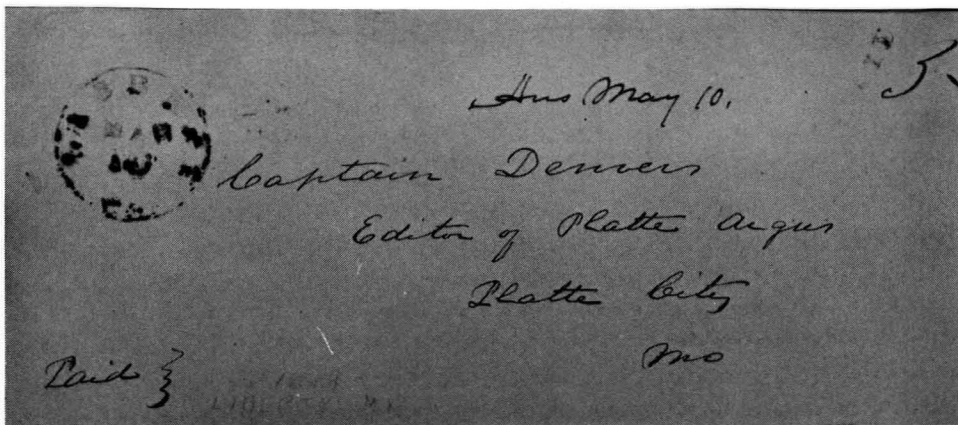 Ans May 10.
5
Captain Denvers
Editor of Platte Argus
Platte City
Mo
Paid